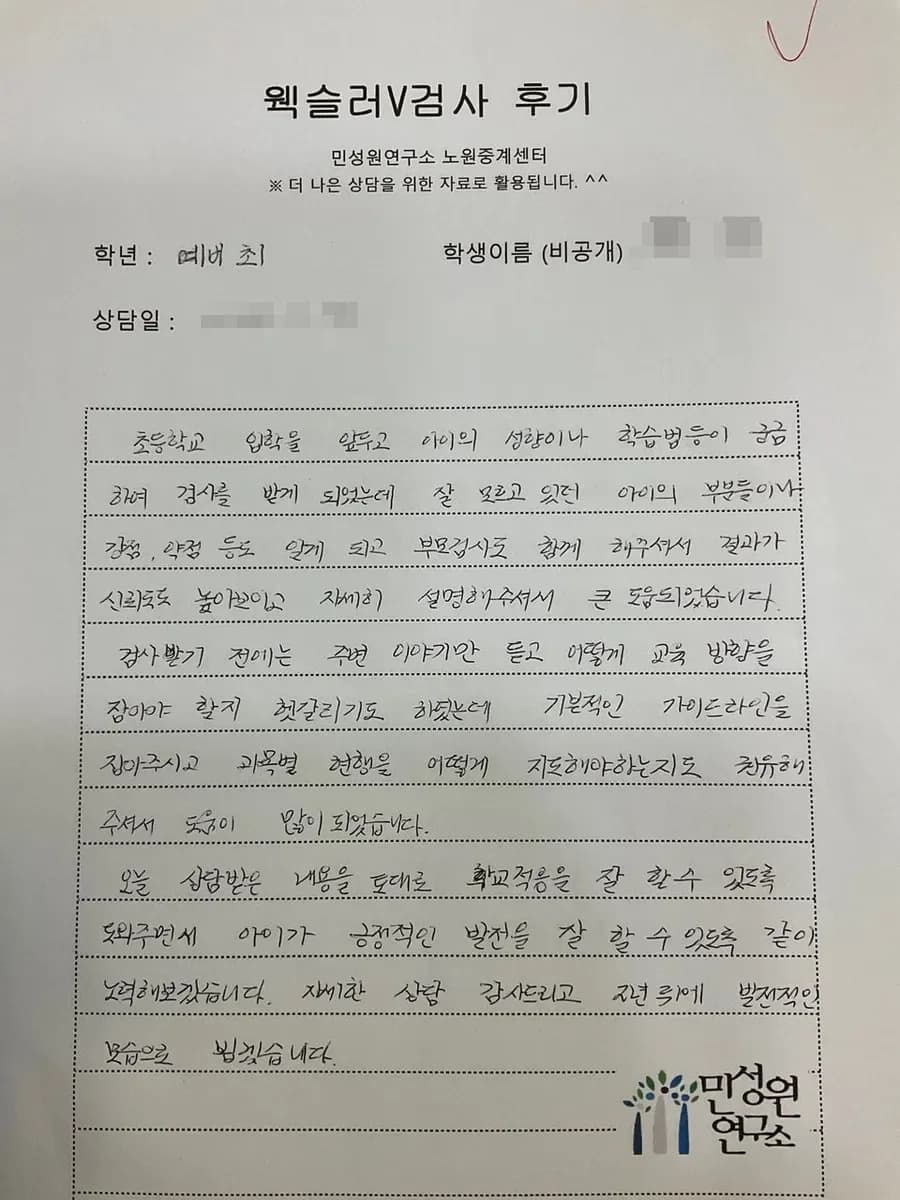 웩슬러V검사 후기
민성원연구소 노원중계센터
※ 더 나은 상담을 위한 자료로 활용됩니다. ^^
학년 : 예비 초1
학생이름 (비공개)
상담일 :
초등학교 입학을 앞두고 아이의 성향이나 학습법등이 궁금
하여 검사를 받게 되었는데 잘 모르고 있던 아이의 부분들이나
강점, 약점 등도 알게 되고 부모검사도 함께 해주셔서 결과가
신뢰도도 높아보이고 자세히 설명해주셔서 큰 도움되었습니다.
검사받기 전에는 주변 이야기만 듣고 어떻게 교육 방향을
잡아야 할지 헷갈리기도 하였는데 기본적인 가이드라인을
잡아주시고 과목별 현행을 어떻게 지도해야하는지도 권유해
주셔서 도움이 많이 되었습니다.
오늘 상담받은 내용을 토대로 학교적응을 잘 할 수 있도록
도와주면서 아이가 긍정적인 발전을 잘 할 수 있도록 같이
노력해보겠습니다. 자세한 상담 감사드리고 2년 뒤에 발전적인
모습으로 뵙겠습니다.
민성원
연구소